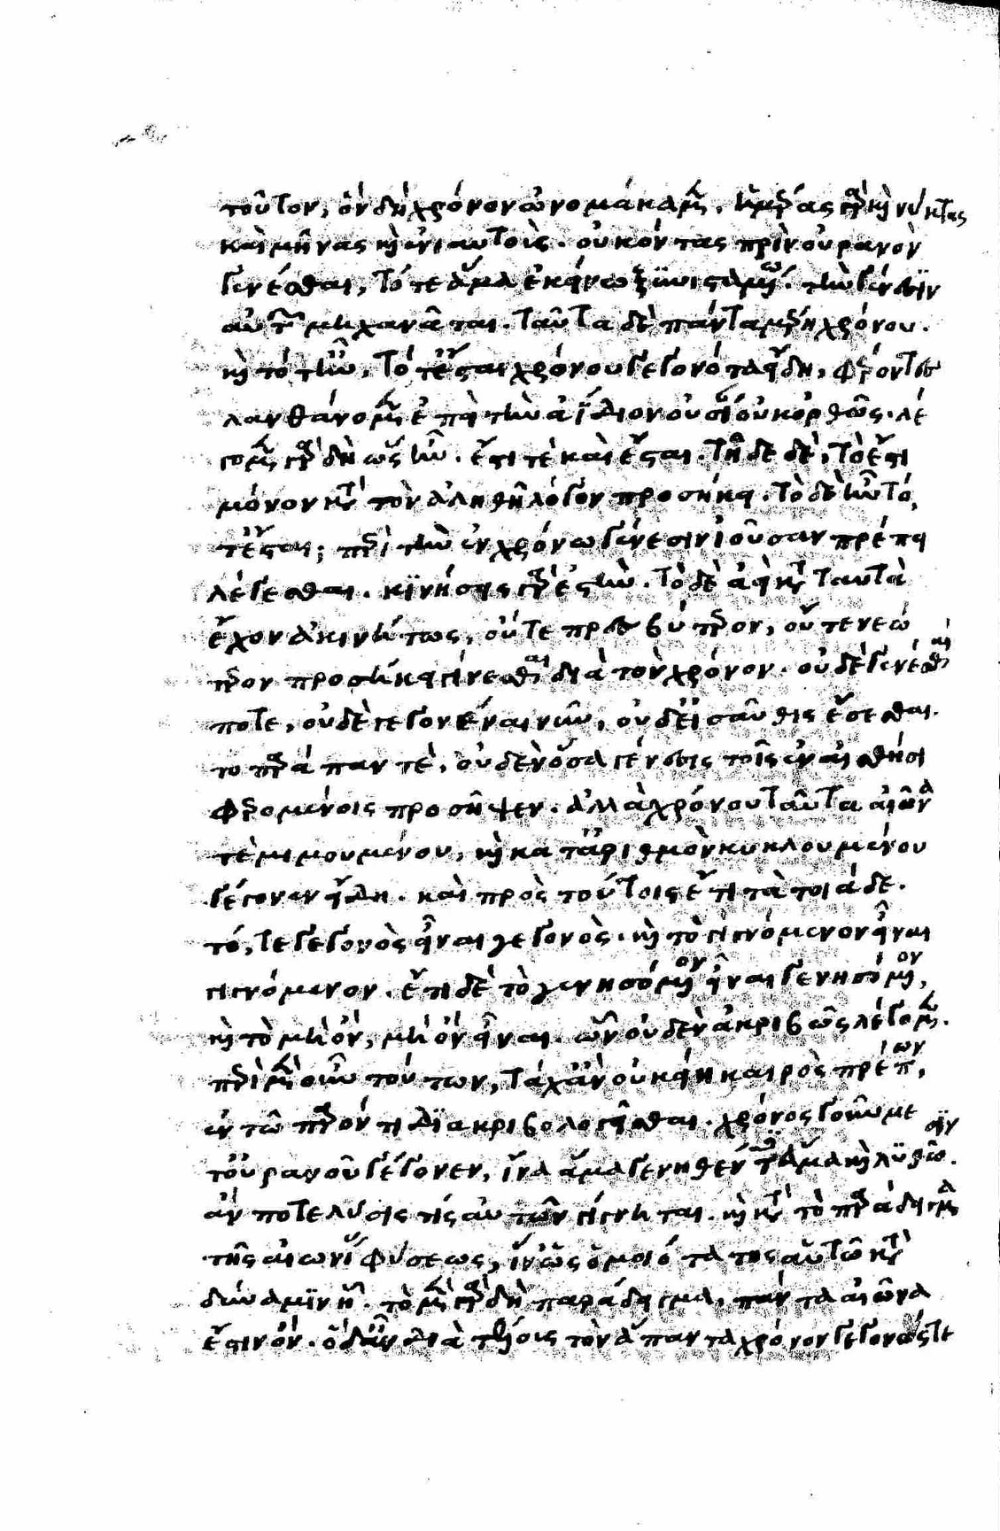 τοῦτον, ὃν δὴ χρόνον ὠνομάκαμεν. ἡμέρας γὰρ καὶ νύκτας
καὶ μῆνας καὶ ἐνιαυτοὺς. οὐκ ὄντας πρὶν οὐρανὸν
γενέσθαι, τότε ἅμα ἐκείνω ξυνισταμένω. τὴν γένεσιν
αὐτῶν μηχανᾶται. ταῦτα δὲ πάντα μέρη χρόνου.
καὶ τό τ' ἦν, τό τ' ἔσται χρόνου γεγονότα εἴδη, φέροντες
λανθάνομεν ἐπὶ τὴν ἀΐδιον οὐσίαν οὐκ ὀρθῶς. λέ
γομεν γὰρ δὴ ὡς ἦν. ἔστι τὲ καὶ ἔσται. τῆ δὲ δὲ, τὸ ἔστι
μόνον κατὰ τὸν ἀληθῆ λόγον προσήκει. τὸ δὲ ἦν τό
τ' ἔσται; περὶ τὴν ἐν χρόνω γένεσιν ἰοῦσαν πρέπει
λέγεσθαι. κινήσεις γάρ ἐστὸν. τὸ δὲ ἀεὶ κατὰ ταυτὰ
ἔχον ἀκινήτως, οὔτε πρεσβύτερον, οὔτε νεώ
τερον προσήκει γίνεσθαι διὰ τὸν χρόνον. οὐδὲ γενέσθαι
ποτε, οὐδὲ γεγονέναι νῦν, οὐδ' εἰσαῦθις ἔσεσθαι.
τοπαράπαν τὲ, οὐδὲν ὅσα γένεσις τοῖς ἐν αἰσθήσει
φερομένοις προσῆψεν. ἀλλὰ χρόνου ταῦτα αἰῶνά
τὲ μιμουμένου, καὶ κατ' ἀριθμὸν κυκλουμένου
γέγονεν εἴδη. καὶ πρὸς τούτοις ἔτι τὰ τοιάδε.
τό, τε γεγονὸς εἶναι γεγονὸς. καὶ τὸ γιγνόμενον εἶναι
γιγνόμενον. ἔτι δὲ τὸ γενησόμενον εἶναι γενησόμενον,
καὶ τὸ μὴ ὂν, μὴ ὂν εἶναι. ὧν οὐδὲν ἀκριβῶς λέγομεν.
περὶ μὲν οὖν τούτων, τάχ' ἂν οὐκ εἴη καιρὸς πρέπων,
ἐν τῶ παρόντι διακριβολογεῖσθαι. χρόνος γοῦν με
τ' οὐρανοῦ γέγονεν, ἵνα ἅμα γενηθέντες ἅμα καὶ λυθῶσιν.
ἄν ποτε λύσις τίς αὐτῶν γίγνηται. καὶ κατὰ τὸ παράδειγμα
τῆς αἰωνίας φύσεως, ἵν' ὡς ὁμοιότατος αὐτῶ κατὰ
δύναμιν ἦ. τὸ μὲν γὰρ δὴ παράδειγμα, πάντα αἰῶνα
ἐστιν ὂν. ὁ δ' αὖ διὰ τέλους τὸν ἅπαντα χρόνον γεγονώς τε